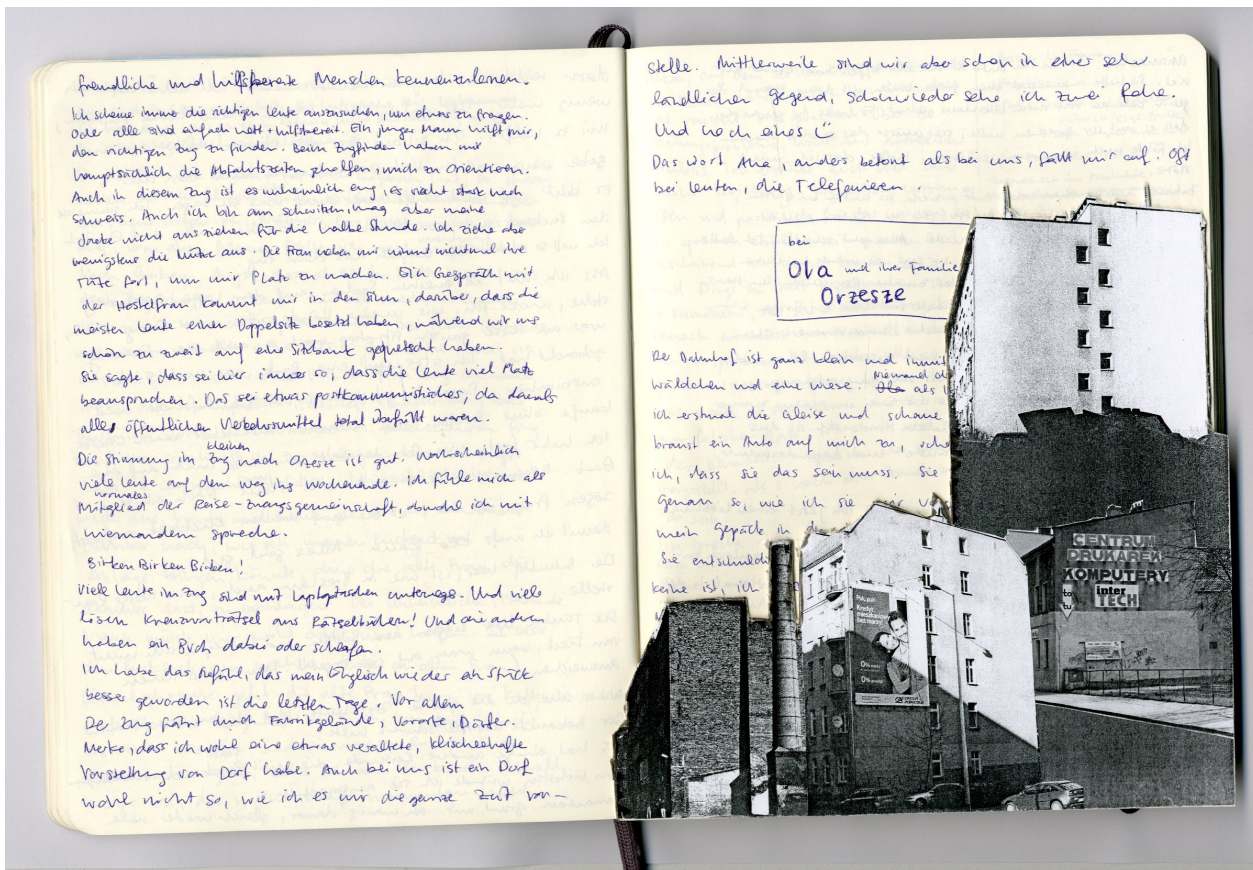 freundliche und hilfsbereite Menschen kennenzulernen.
Ich scheine immer die richtigen Leute auszusuchen, um etwas zu fragen.
Oder alle sind einfach nett + hilfsbereit. Ein junger Mann hilft mir,
den richtigen Zug zu finden. Beim Zugfinden haben mir
hauptsächlich die Abfahrtszeiten geholfen, mich zu orientieren.
Auch in diesem Zug ist es unheimlich eng, es riecht stark nach
Schweiss. Auch ich bin am schwitzen, mag aber meine
Jacke nicht ausziehen für die halbe Stunde. Ich ziehe aber
wenigstens die Mütze aus. Die Frau neben mir nimmt nichtmal ihre
Tüte fort, um mir Platz zu machen. Ein Gespräch mit
der Hostelfrau kommt mir in den Sinn, darüber, dass die
meisten Leute einen Doppelsitz besetzt haben, während wir uns
schon zu zweit auf eine Sitzbank gequetscht haben.
Sie sagte, dass sei hier immer so, dass die Leute viel Platz
beanspruchen. Das sei etwas postkommunistisches, da damals
alle öffentlichen Verkehrsmittel total überfüllt waren.
Die Stimmung im kleinen Zug nach Orzesze ist gut. Wahrscheinlich
viele Leute auf dem Weg ins Wochenende. Ich fühle mich als
normales Mitglied der Reise-Zwangsgemeinschaft, obwohl ich mit
niemandem spreche.
Birken Birken Birken!
Viele Leute im Zug sind mit Laptoptaschen unterwegs. Und viele
lösen Kreuzworträtsel aus Rätselbüchern! Und die anderen
haben ein Buch dabei oder schlafen.
Ich habe das Gefühl, das mein Englisch wieder ein Stück
besser geworden ist die letzten Tage. Vor allem
Der Zug fährt durch Fabrikgelände, Vororte, Dörfer.
Merke, dass ich wohl eine etwas veraltete, klischeehafte
Vorstellung von Dorf habe. Auch bei uns ist ein Dorf
wohl nicht so, wie ich es mir die ganze Zeit vor-
stelle. Mittlerweile sind wir aber schon in eher sehr
ländlicher Gegend, schonwieder sehe ich zwei Rehe.
Und noch eines
Das Wort Aha, anders betont als bei uns, fällt mir auf. Oft
bei Leuten, die Telefonieren.
bei
Ola und ihrer Familie
Orzesze
Der Bahnhof ist ganz klein und inmit
wäldchen und eine Wiese. Niemand
ich erstmal die Gleise und schaue
braust ein Auto auf mich zu, scho
ich, dass sie das sein muss. Sie
Genau so, wie ich sie mir
mein Gepäck in
Sie entschuldi
keine ist, ich
CENTRUM
DRUKAREK
KOMPUTERY
inter
TECH
to
tu
Kredyt
mieszkaniowy
bez marży
0%
0%